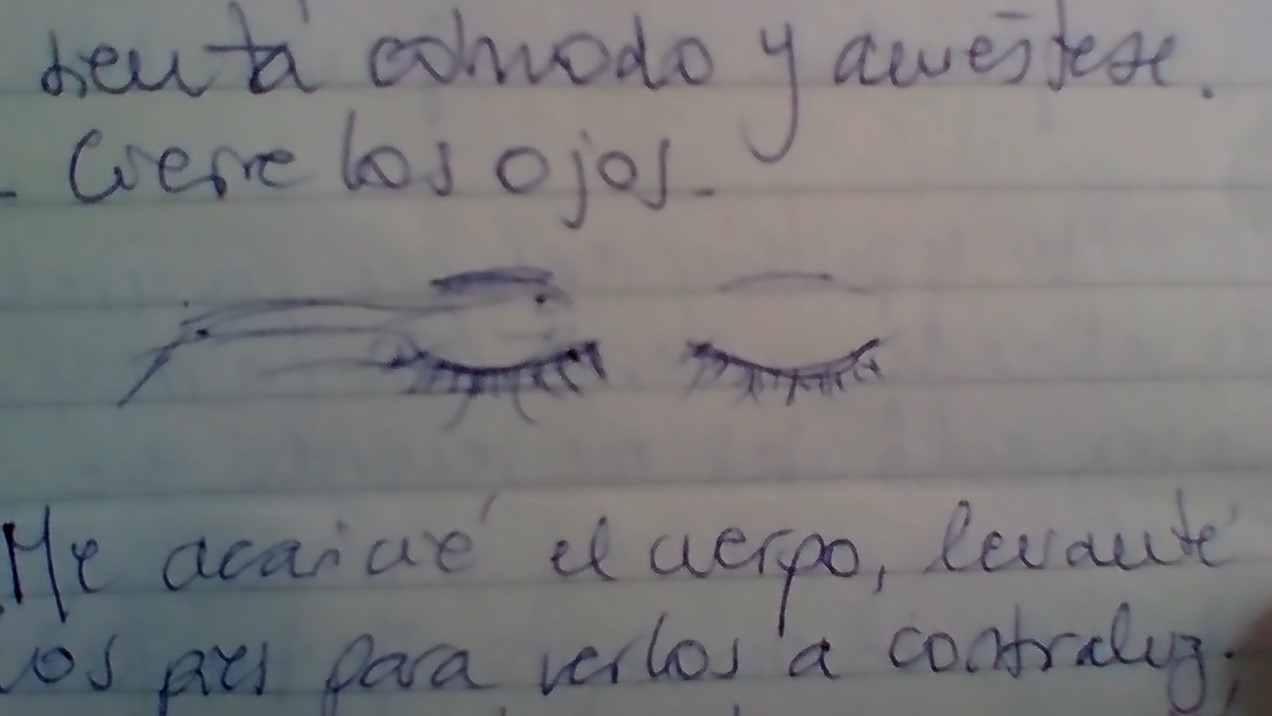 sientá cómodo y acuéstese.
- Cierre los ojos.-
Me acaricié el cuerpo, levanté
los pies para verlos a contraluz;